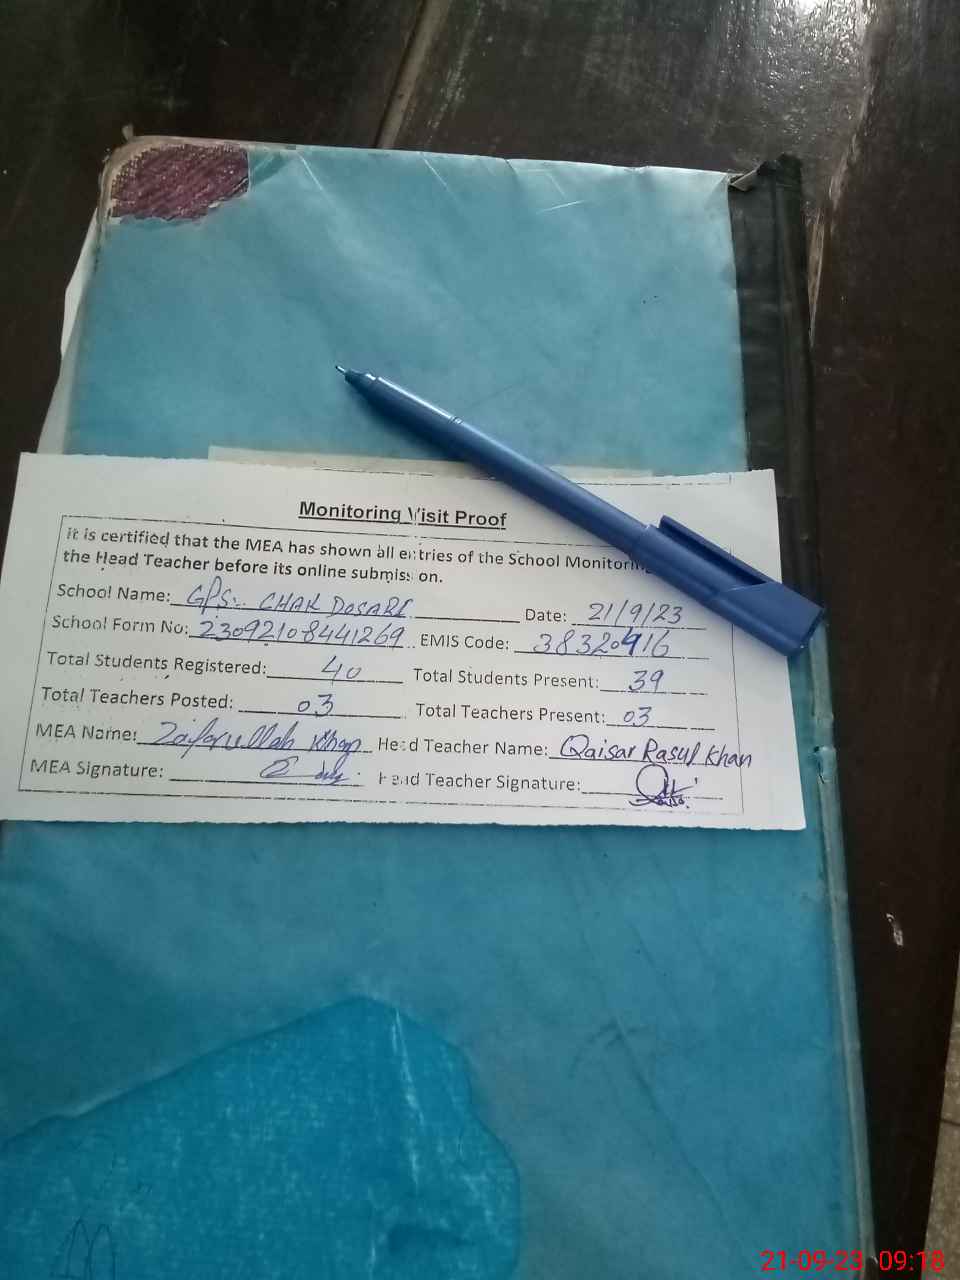 Monitoring Visit Proof
It is certified that the MEA has shown all entries of the School Monitoring
the Head Teacher before its online submission.
School Name: GPS:. CHAK DOSARI Date: 21/9/23
School Form No: 23092108441269 EMIS Code: 38320916
Total Students Registered: 40 Total Students Present: 39
Total Teachers Posted: 03 Total Teachers Present: 03
MEA Name: Zafarullah Khan Head Teacher Name: Qaisar Rasul Khan
MEA Signature: Head Teacher Signature:
21-09-23 09:18